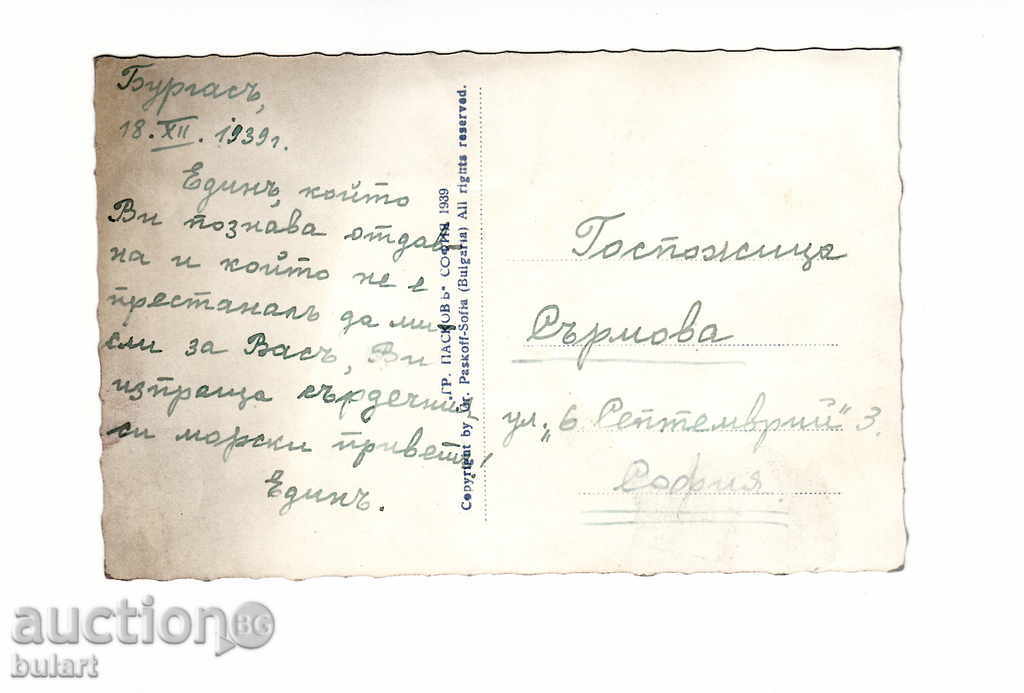 Бургасъ,
18. XII. 1939г.
Единъ, който
Ви познава отдав
на и който не е
престаналъ да ми
сли за Васъ, Ви
изпраща сърдечни
си морски привети!
Единъ.
„ГР. ПАСКОВЪ“ СОФИЯ 1939
Copyright by Gr. Paskoff-Sofia (Bulgaria) All rights reserved.
Госпожица
Сърмова
ул. „6 Септемврий“ 3.
София
auctionBG
bulart